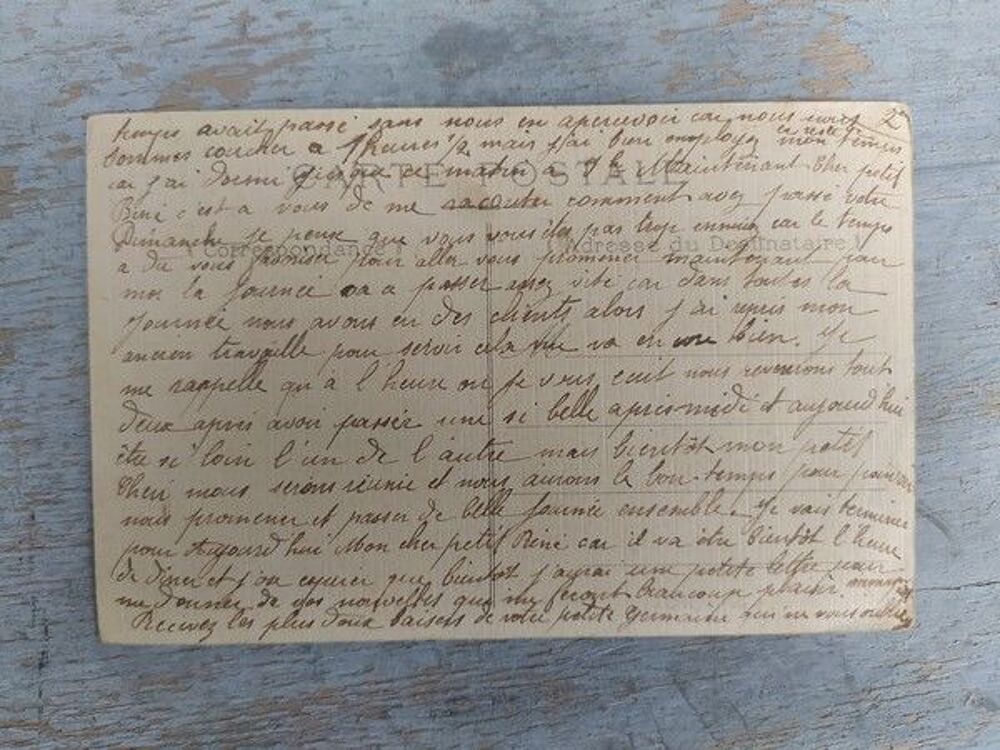 2
temps avait passé sans nous en apercevoir car nous
sommes coucher a heures 1/2 mais j'ai bien employez mon temps
car j'ai dormi jusque ce matin a 9 h Maintenant Cher petit
CARTE POSTALE
René c'est a vous de me raconter comment avez passé votre
Dimanche je pense que vous vous êtes pas trop ennuié car le temps
Correspondance
Adresse du Destinataire
a du vous favoriser pour aller vous promener maintenant pour
moi la journée a passer assez vite car dans toutes la
journée nous avons eu des clients alors j'ai repris mon
ancien travaille pour servir cela va encore bien. Je
me rappelle qu'à l'heure ou je vous écrit nous revenions tout
deux après avoir passer une si belle après-midi et aujourd'hui
être si loin l'un de l'autre mais bientôt mon petit
Cheri nous serons réunie et nous aurons le bon temps pour pouvoir
nous promener et passer de belle journée ensemble. Je vais terminer
pour Aujourd'hui Mon cher petit René car il va être bientôt l'heure
de diner et j'ose espérer que bientôt j'aurai une petite lettre pour
me donner de vos nouvelles qui me feront beaucoup plaisir
Recevez les plus doux baisers de votre petite Germaine qui ne vous oublie